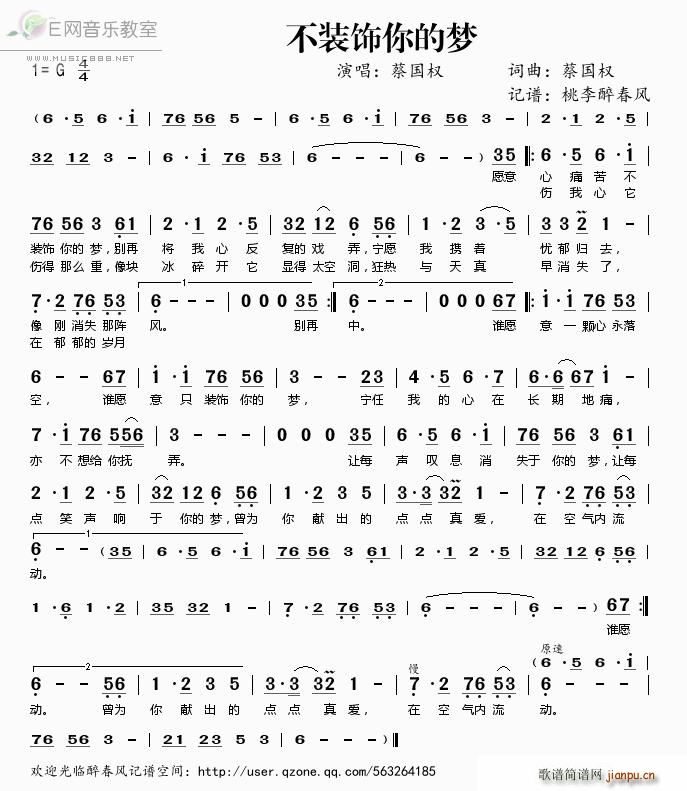 E网音乐教室
WWW.MUSIC888.NET
不装饰你的梦
1=G 4/4
演唱：蔡国权
词曲：蔡国权
记谱：桃李醉春风
(6·5 6·i | 76 56 5 - | 5·6 6·i | 76 56 3 - | 2·1 2·5 |
32 12 3 - | 6·i 76 53 | 6 - - - | 6 - - ) 35 |: 6·5 6·i |
愿意 心痛苦不
伤我心它
76 56 3 61 | 2·1 2·5 | 32 12 6 56 | 1·2 3·5 | 3 3 2 1 - |
装饰你的梦，别再 将我心反 复的戏弄，宁愿 我携着 忧郁归去，
伤得那么重，像块 冰碎开它 显得太空洞，狂热 与天真 早消失了，
7·2 76 53 | 6 - - - | 0 0 0 35 :| 6 - - - | 0 0 0 67 |: i·i 76 56 |
像刚消失那阵 风。 别再 中。 谁愿 意一颗心永落
在郁郁的岁月
6 - - 67 | i·i 76 56 | 3 - - 23 | 4·5 6·7 | 6·6 67 76 - |
空， 谁愿 意只装饰你的 梦， 宁任 我的心在 长期地痛，
7·i 76 556 | 3 - - - | 0 0 0 35 | 6·5 6·i | 76 56 3 61 |
亦不想给你抚 弄。 让每 声叹息消 失于你的梦，让每
2·1 2·5 | 32 12 6 56 | 1·2 3 5 | 3·3 32 1 - | 7·2 76 53 |
点笑声响 于你的梦，曾为 你献出的 点点真爱， 在空气内流
6 - - (35 | 6·5 6·i | 76 56 3 61 | 2·1 2·5 | 32 12 6 56 |
动。
1·6 1·2 | 35 32 1 - | 7·2 76 53 | 6 - - - | 6 - - ) 67 :|
谁愿
原速
慢
(6·5 6·i |
6 - - 56 | 1·2 3 5 | 3·3 32 1 - | 7·2 76 53 | 6 - - - |
动。 曾为 你献出的 点点真爱， 在空气内流 动。
76 56 3 - | 21 23 5 - | 6 - - - )||
欢迎光临醉春风记谱空间：http://user.qzone.qq.com/563264185
歌谱简谱网 jianpu.cn